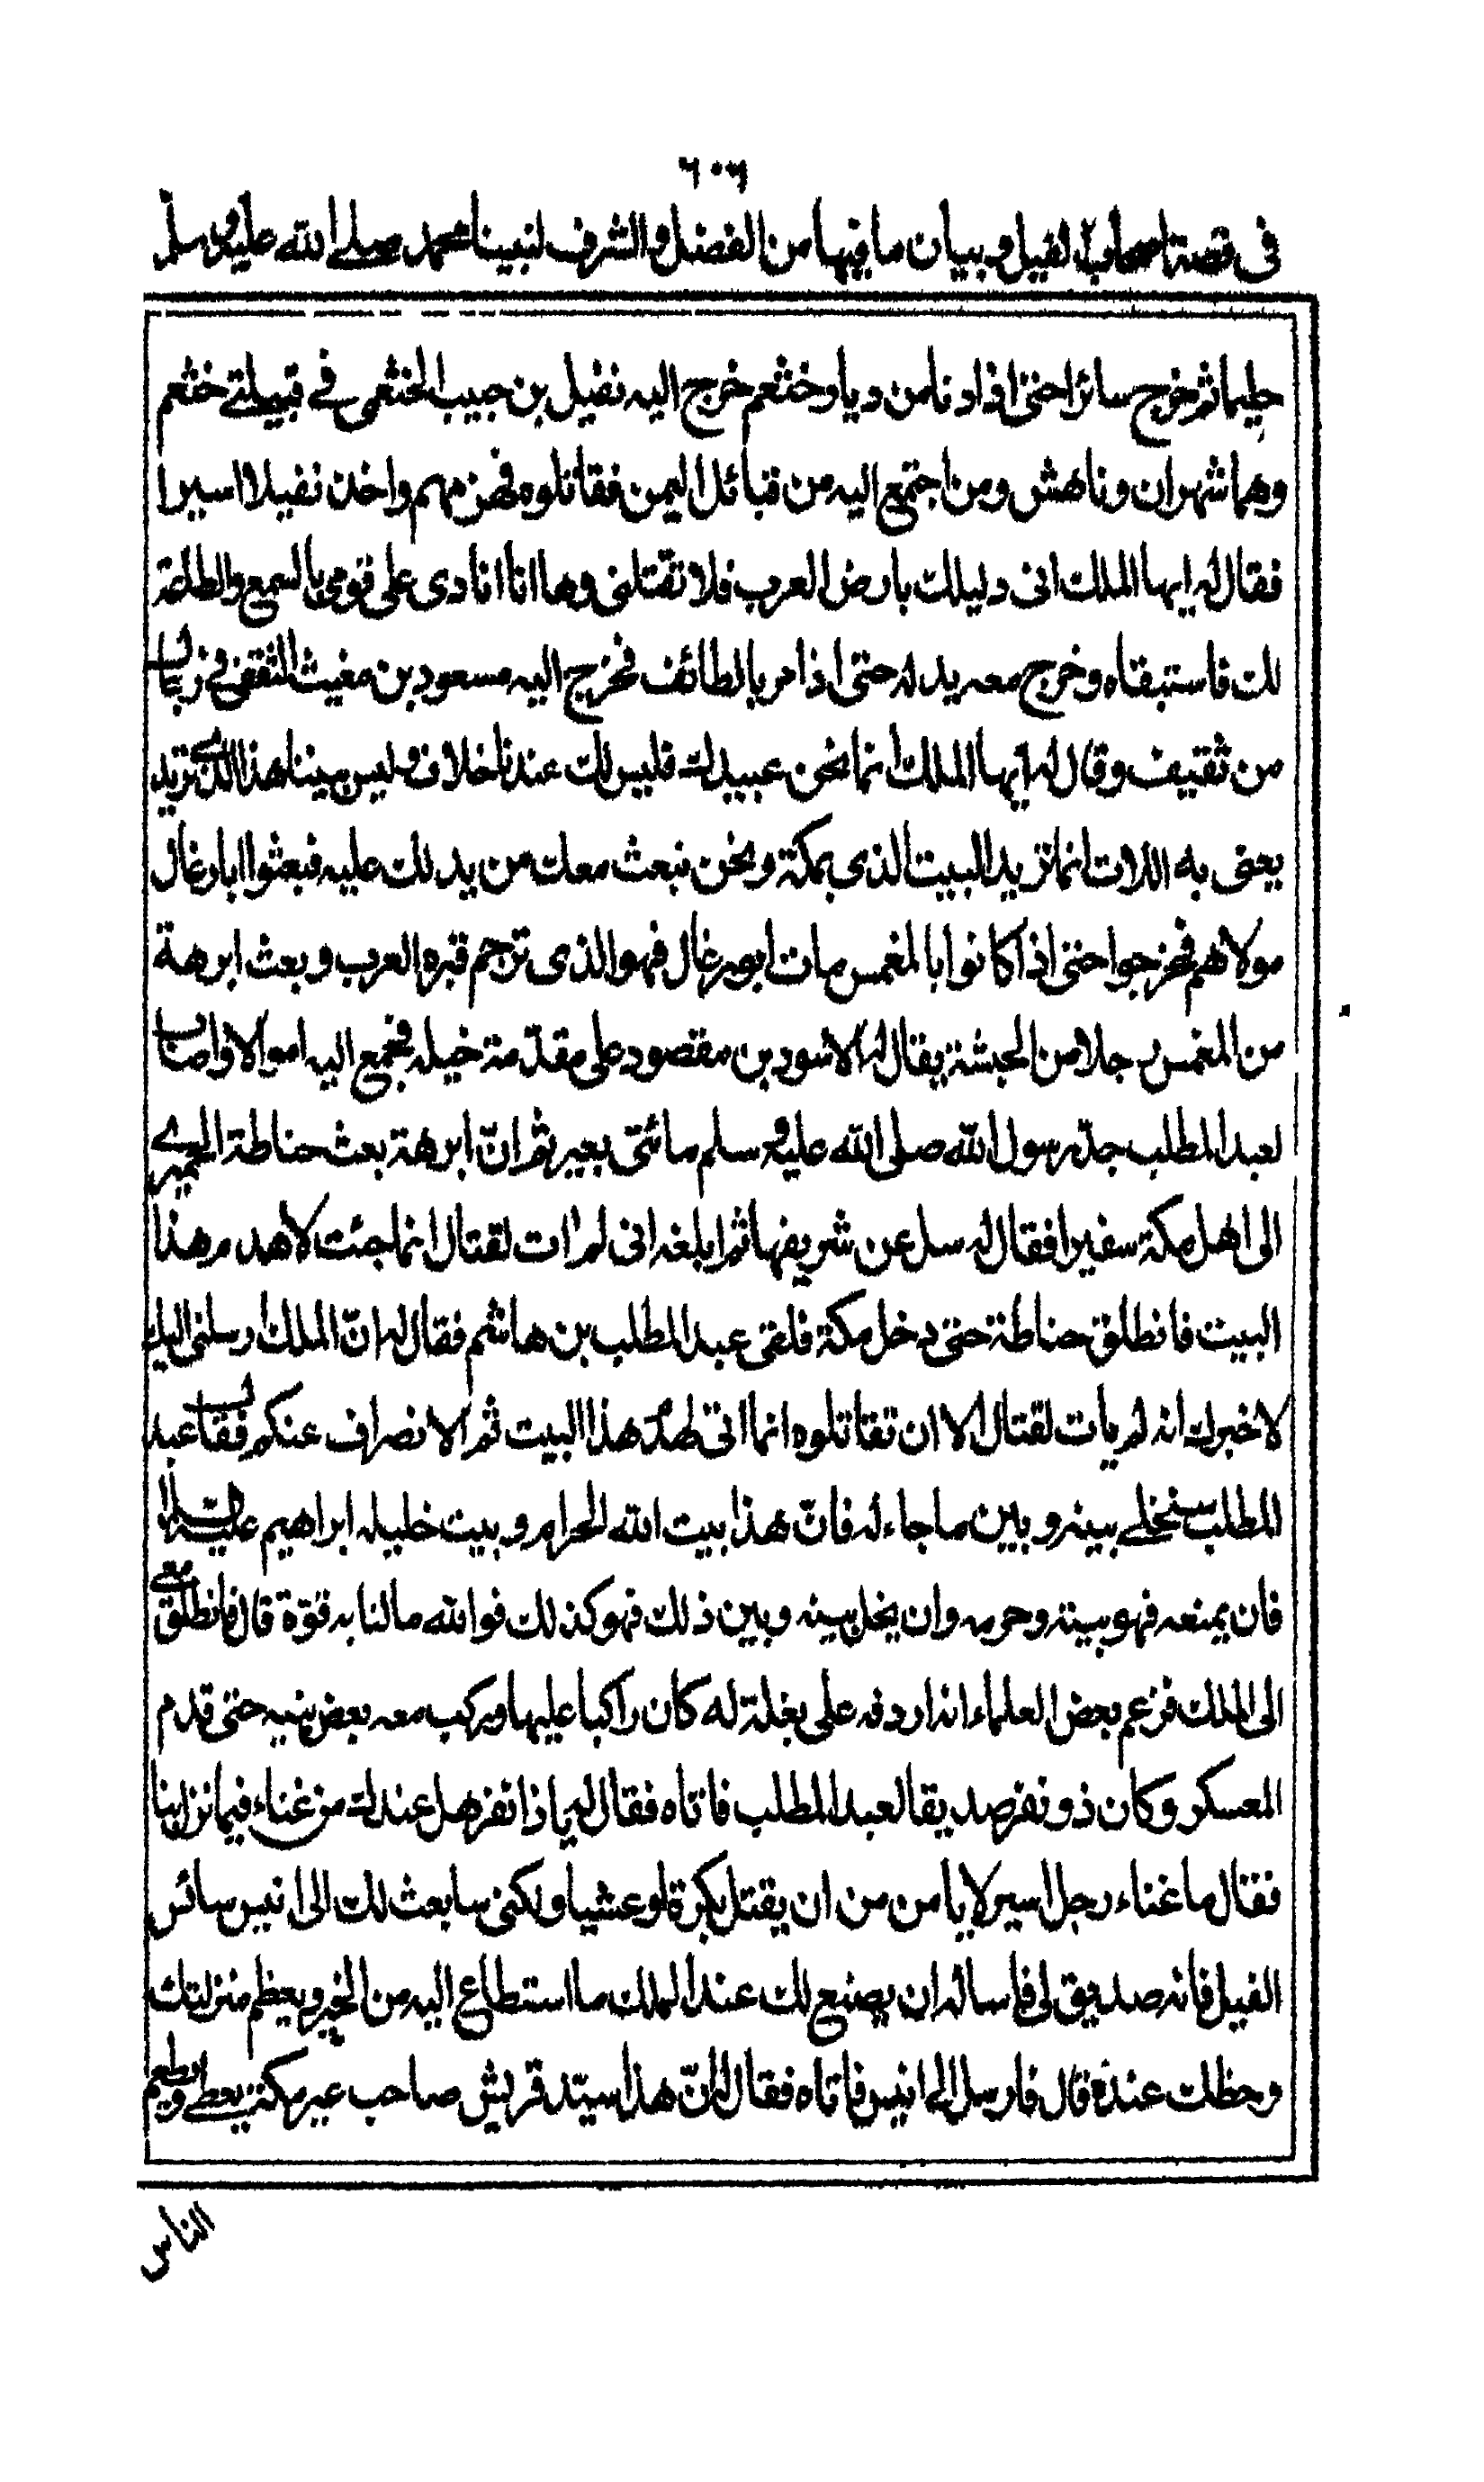 ٦٠٦
في قصة اصحاب الفيل وبيان ما فيها من الفضل والشرف لنبينا محمد صلى الله عليه وسلم
حليما ثم خرج سائرا حتى اذا دنا من دياد خثعم خرج اليه نفيل بن حبيب الخثعمى في قبيلتي خثعم
وهما شهران وناهش ومن اجتمع اليه من قبائل اليمن فقاتلوه فهزمهم واخذ نفيلا اسيرا
فقال له ايها الملك انى دليلك بارض العرب فلا تقتلنى وها انا انادى على قومى بالسمع والطاعة
لك فاستبقاه وخرج معه يدله حتى اذا مر بالطائف فخرج اليه مسعود بن مغيث الثقفى في رجال
من ثقيف وقال له ايها الملك انما نحن عبيدك فليس لك عندنا خلاف وليس بيننا هذا الذي تريد
يعنى به اللات انما تريد البيت الذى بمكة ونحن نبعث معك من يدلك عليه فبعثوا ابا رغال
مولاهم فخرجوا حتى اذا كانوا بالمغمس مات ابو رغال فهو الذى ترجم قبره العرب وبعث ابرهة
من المغمس رجلا من الحبشة يقال له الاسود بن مقصود على مقدّمة خيله فجمع اليه اموالا واصاب
لعبد المطلب جدّ رسول الله صلى الله عليه وسلم مائتى بعير ثم انّ ابرهة بعث حناطة الحميري
الى اهل مكة سفيرا فقال له سل عن شريفها ثم ابلغه انى لم ات لقتال انما جئت لاهدم هذا
البيت فانطلق حناطة حتى دخل مكة فلقى عبد المطلب بن هاشم فقال له انّ الملك ارسلنى اليك
لاخبرك انه لم يات لقتال الا ان تقاتلوه انما اتى لهدّ هذا البيت ثم الانصراف عنكم فقال عبد
المطلب سنخلي بينه وبين ما جاء له فانّ هذا بيت الله الحرام وبيت خليله ابراهيم عليه السلام
فان يمنعه فهو بيته وحرمه وان يخل بينه وبين ذلك فهو كذلك فوالله ما لنا به قوّة قال فانطلق معي
الى الملك فزعم بعض العلماء انه اردفه على بغلة له كان راكبا عليها وركب معه بعض بنيه حتى قدم
المعسكر وكان ذو نفر صديقا لعبد المطلب فاتاه فقال له يا ذا نفر هل عندك من غناء فيما نزل بنا
فقال ما غناء رجل اسير لا يا من من ان يقتل بكرة او عشيا ولكنى سابعث لك الى انيس سائس
الفيل فانه صديق لى فاساله ان يصنع لك عند الملك ما استطاع اليه من الخير ويعظم منزلتك
وحظك عنده قال فارسل الى انيس فاتاه فقال له انّ هذا سيّد قريش صاحب عير مكة يعطي ويطعم
الناس